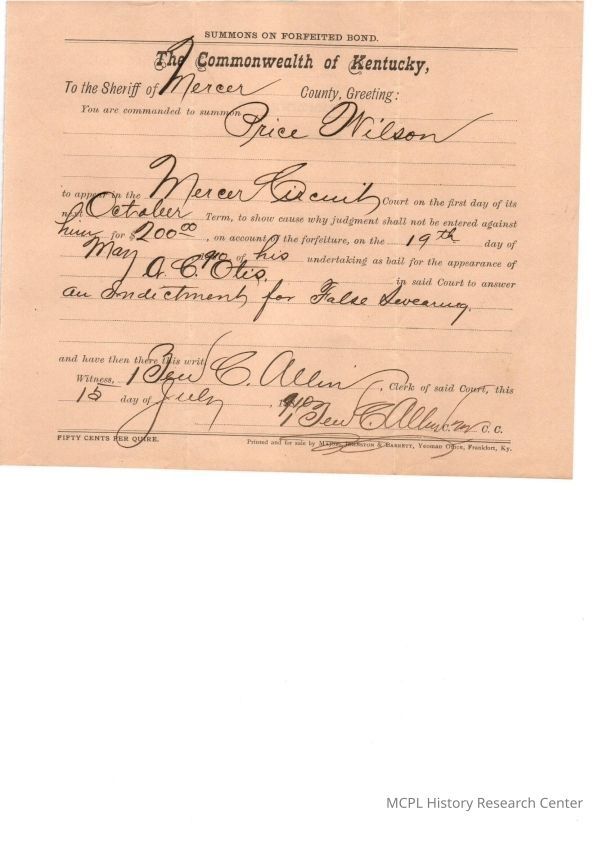 SUMMONS ON FORFEITED BOND.
The Commonwealth of Kentucky,
To the Sheriff of Mercer County, Greeting:
You are commanded to summon Price Wilson
to appear in the Mercer Circuit Court on the first day of its
next October Term, to show cause why judgment shall not be entered against
him for $200 00, on account of the forfeiture, on the 19th day of
May 1910 of his undertaking as bail for the appearance of
A. C. Otis, in said Court to answer
an Indictment for False Swearing.
and have then there this writ
Witness, Ben C. Allin, Clerk of said Court, this
15 day of July 1910
Ben C Allin C. C.
FIFTY CENTS PER QUIRE.
Printed and for sale by Major, Johnston & Barrett, Yeoman Office, Frankfort, Ky.
MCPL History Research Center